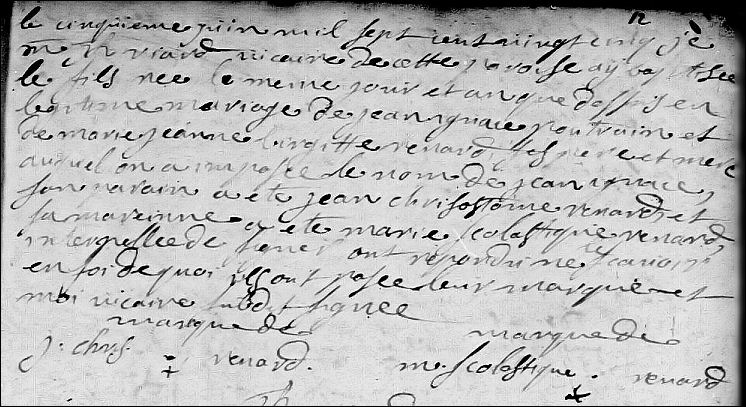 12
le cinquieme juin mil sept cent vingt cinq je
m. N viard vicaire de cette paroise ay baptisee
le fils nee le meme jour et an que dessus en
legitime mariage de jean ignace poutrain et
de marie jeanne birgitte renard, ses pere et mere
auquel on a imposee le nom de jean ignace,
son parain a ete jean chrisostome renard, et
sa marainne a ete marie scolastique renard,
interpellee de signer ont repondu ne scavoir
en foi de quoi ils ont posee leur marque et
moi vicaire subdt signee
marque de marque de
j. chris. renard. m. scolastique. renard